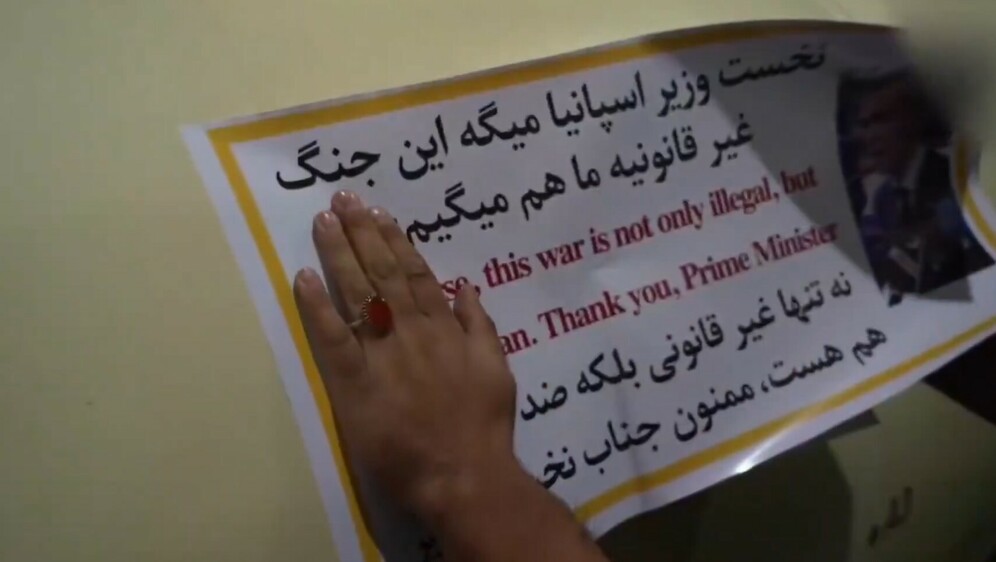 نخست وزیر اسپانیا میگه این جنگ
غیر قانونیه ما هم میگیم:
this war is not only illegal, but
Thank you, Prime Minister
نه تنها غیر قانونی بلکه ضد
هم هست، ممنون جناب